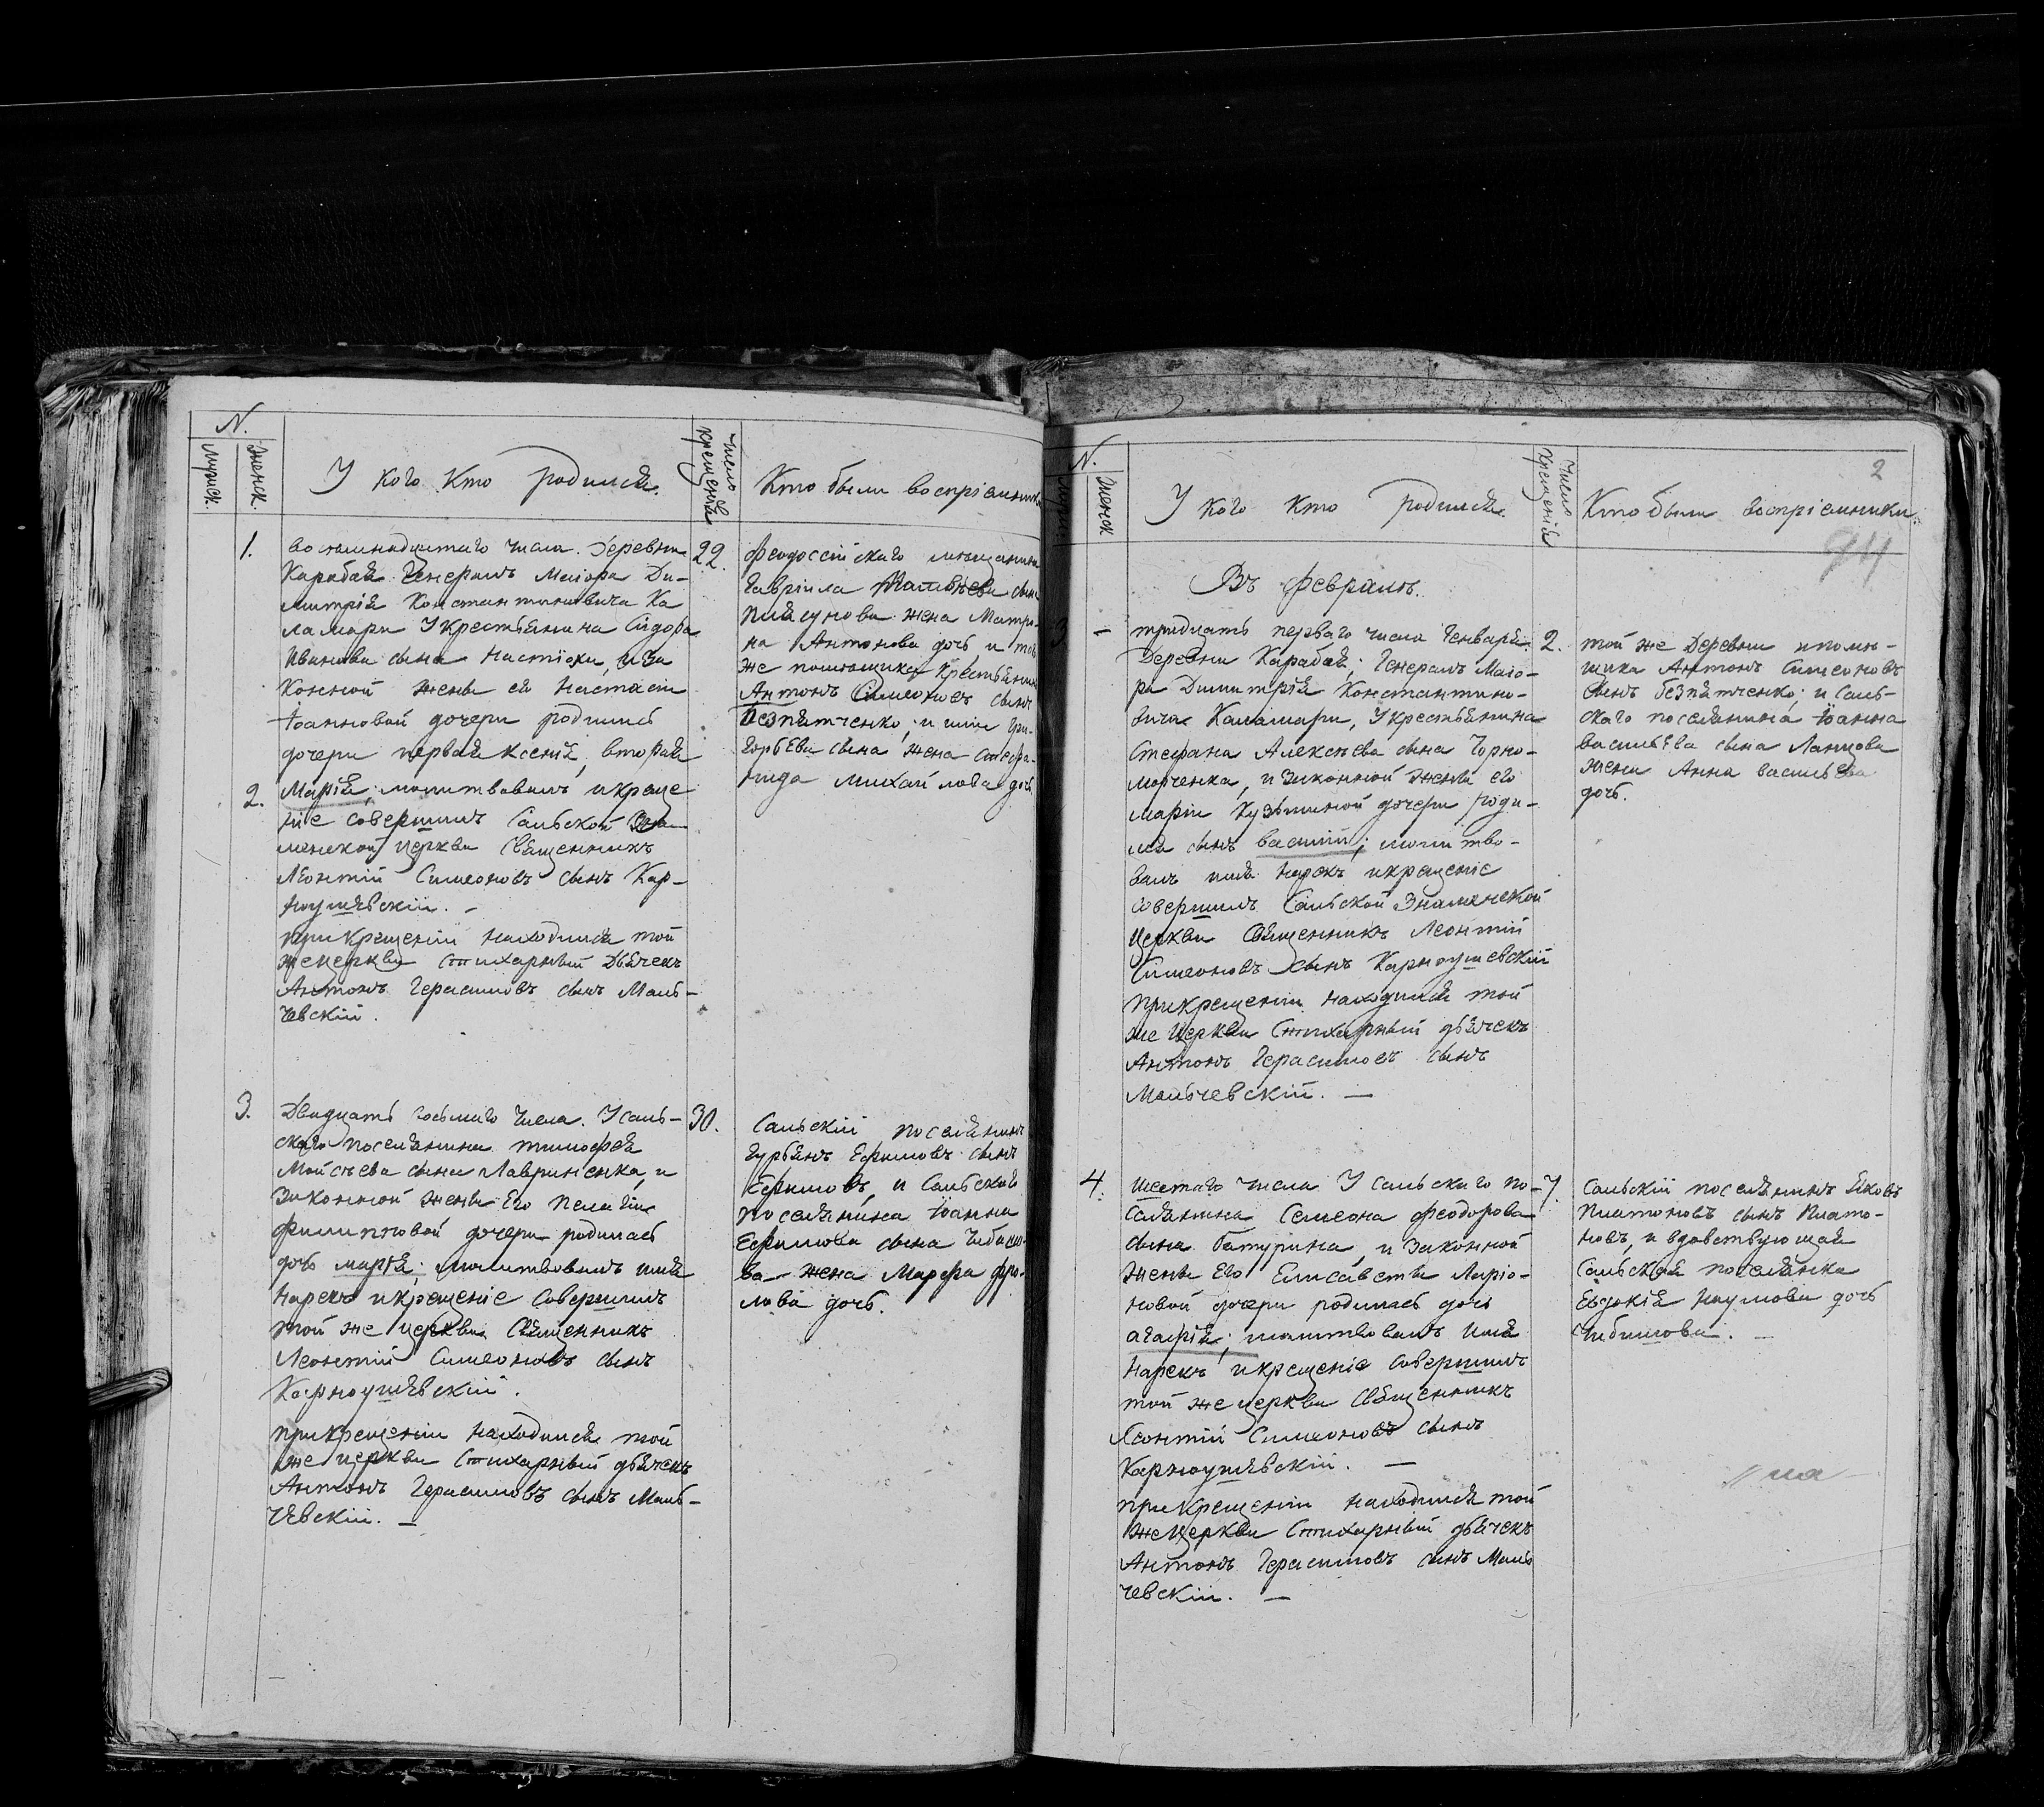 N.
Мужск.
Женск.
У кого кто родился.
Число крещенія
Кто были воспріемники
1.
восемнадцатаго числа. Деревни
Карабая Генералъ Маіора Ди-
митрія Константиновича Ка
ламари У крестьянина Сидора
Иванова сына и за
конной жены его Настасіи
Іоанновой дочери родились
дочери первая Ксенія, вторая
2.
Марія, молитвовалъ и креще
ніе совершилъ Сальской Зна
менской Церкви Священникъ
Леонтій Симеоновъ сынъ Кар-
ноушевскій. -
при Крещеніи находился той
же церкви стихарный Дьячекъ
Антонъ Герасимовъ сынъ Маль-
чевскій.
22.
Феодоссійскаго мещанина
Гавріила Матвѣева сына
жена Матро-
на Антонова дочь и той
же помѣщика Крестьянинъ
Антонъ Симеоновъ сынъ
Безпятченко, и Гри-
горьева сына жена Стефа-
нида Михайлова дочь
3.
Двадцать восьмаго числа. У саль-
скаго поселянина тимофея
Мойсѣева сына Лавриненка, и
законной жены Его Пелагіи
Филипповой дочери родилась
дочь марія; молитвовалъ имя
нарекъ и крещеніе совершилъ
той же церкви Священникъ
Леонтій Симеоновъ сынъ
Карноушевскій.
при крещеніи находился той
же церкви Стихарный дьячекъ
Антонъ Герасимовъ сынъ Маль-
чевскій. —
30.
Сальскій поселянинъ
Ефимовъ сынъ
Ефимовъ, и Сальскаго
поселянина Іоанна
Ефимова сына Чибисо-
ва - жена Марфа
лова дочь.
N.
Женск
У кого кто родился.
Число Крещенія
Кто были воспріемники.
2
94
Въ февралѣ.
тридцать перваго числа Генваря.
Деревни Карабая; Генералъ Маіо-
ра Димитрія Константино-
вича Каламари, У крестьянина
Стефана Алексѣева сына Чорно-
морченка, и законной жены его
Маріи Кузьминой дочери роди-
лся сынъ василій; молитво-
валъ имя нарекъ и крещеніе
совершилъ Сальской Знаменской
Церкви Священникъ Леонтій
Симеоновъ сынъ Карноушевскій
при крещеніи находился той
же Церкви Стихарный дьячекъ
Антонъ Герасимовъ сынъ
Мальчевскій. —
2.
той же Деревни и помѣ-
щика Антонъ Симеоновъ
сынъ безпятченко; и Саль-
скаго поселянина Іоанна
васильева сына Ланцова
жена Анна васильева
дочь.
4.
шестаго числа У сальскаго по-
селянина Семеона феодорова
сына Батурина, и законной
жены Его Елисаветы Ларіо-
новой дочери родилась дочь
агафія; молитвовалъ имя
нарекъ и крещеніе совершилъ
той же церкви Священникъ
Леонтій Симеоновъ сынъ
Карноушевскій. —
при Крещеніи находился той
же Церкви Стихарный дьячекъ
Антонъ Герасимовъ сынъ Маль
чевскій. —
7.
Сальскій поселянинъ Яковъ
Платоновъ сынъ Плато-
новъ, и вдовствующая
Сальская поселянка
Евдокія Наумова дочь
Чибисова. —